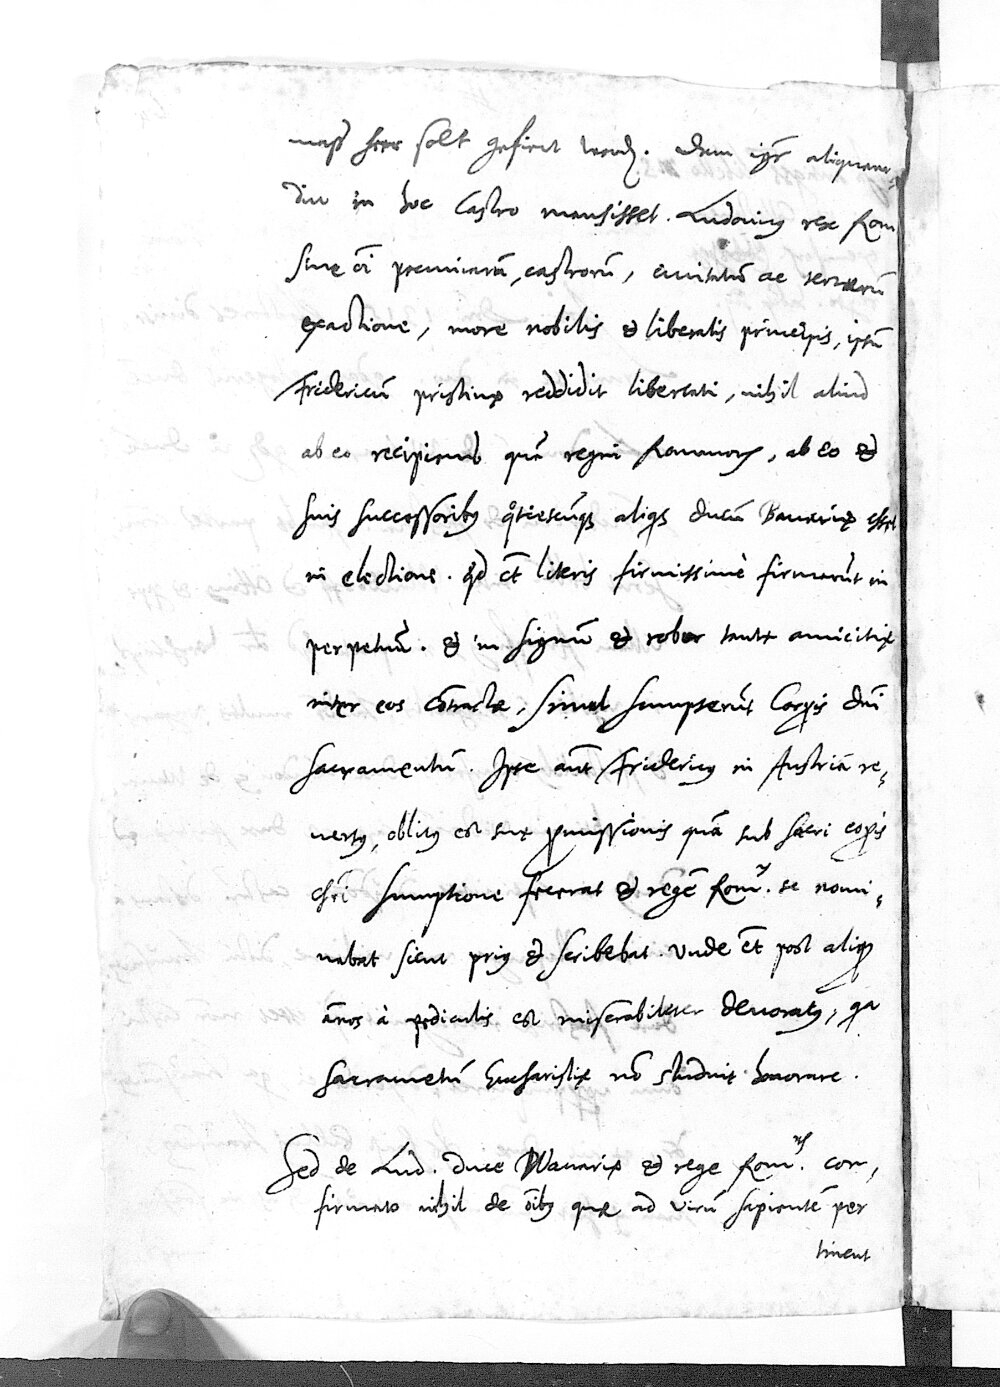 mass herr solt gefirt werd. Dum igr aliquam-
diu in hoc Castro mansisset. Ludovicus rex Rom
sine oi pecuniarū, castrorū, civitatū ac terrarū
exactione, more nobilis & liberalis principis, ipsū
Fridericū pristinę reddidit libertati, nihil aliud
ab eo recipiens quā regni Romanorum, ab eo &
suis successoribus qtiescūqs aliqs ducū Bavarię esset
in electione. qd et literis firmissimè firmarūt in
perpetuū. & in signū & robur tantę amicitię
inter eos cōtractę, simul sumpserūt Corpis dni
sacramentū. Ipse aūt Fridericus in Austriā re-
versus, oblitus est suę pmissionis quā sub sacri corpis
chri sumptione fecerat & regē Rom. se nomi-
nabat sicut prius & scribebat. Unde et post aliqs
ānos à pediculis est miserabiliter devoratus, qa
sacrametū Eucharistię nō studuit honorare.
Sed de Lud. Duce Bavarię & rege Rom. con-
firmato nihil de oibus quę ad virū sapientē per
tinent